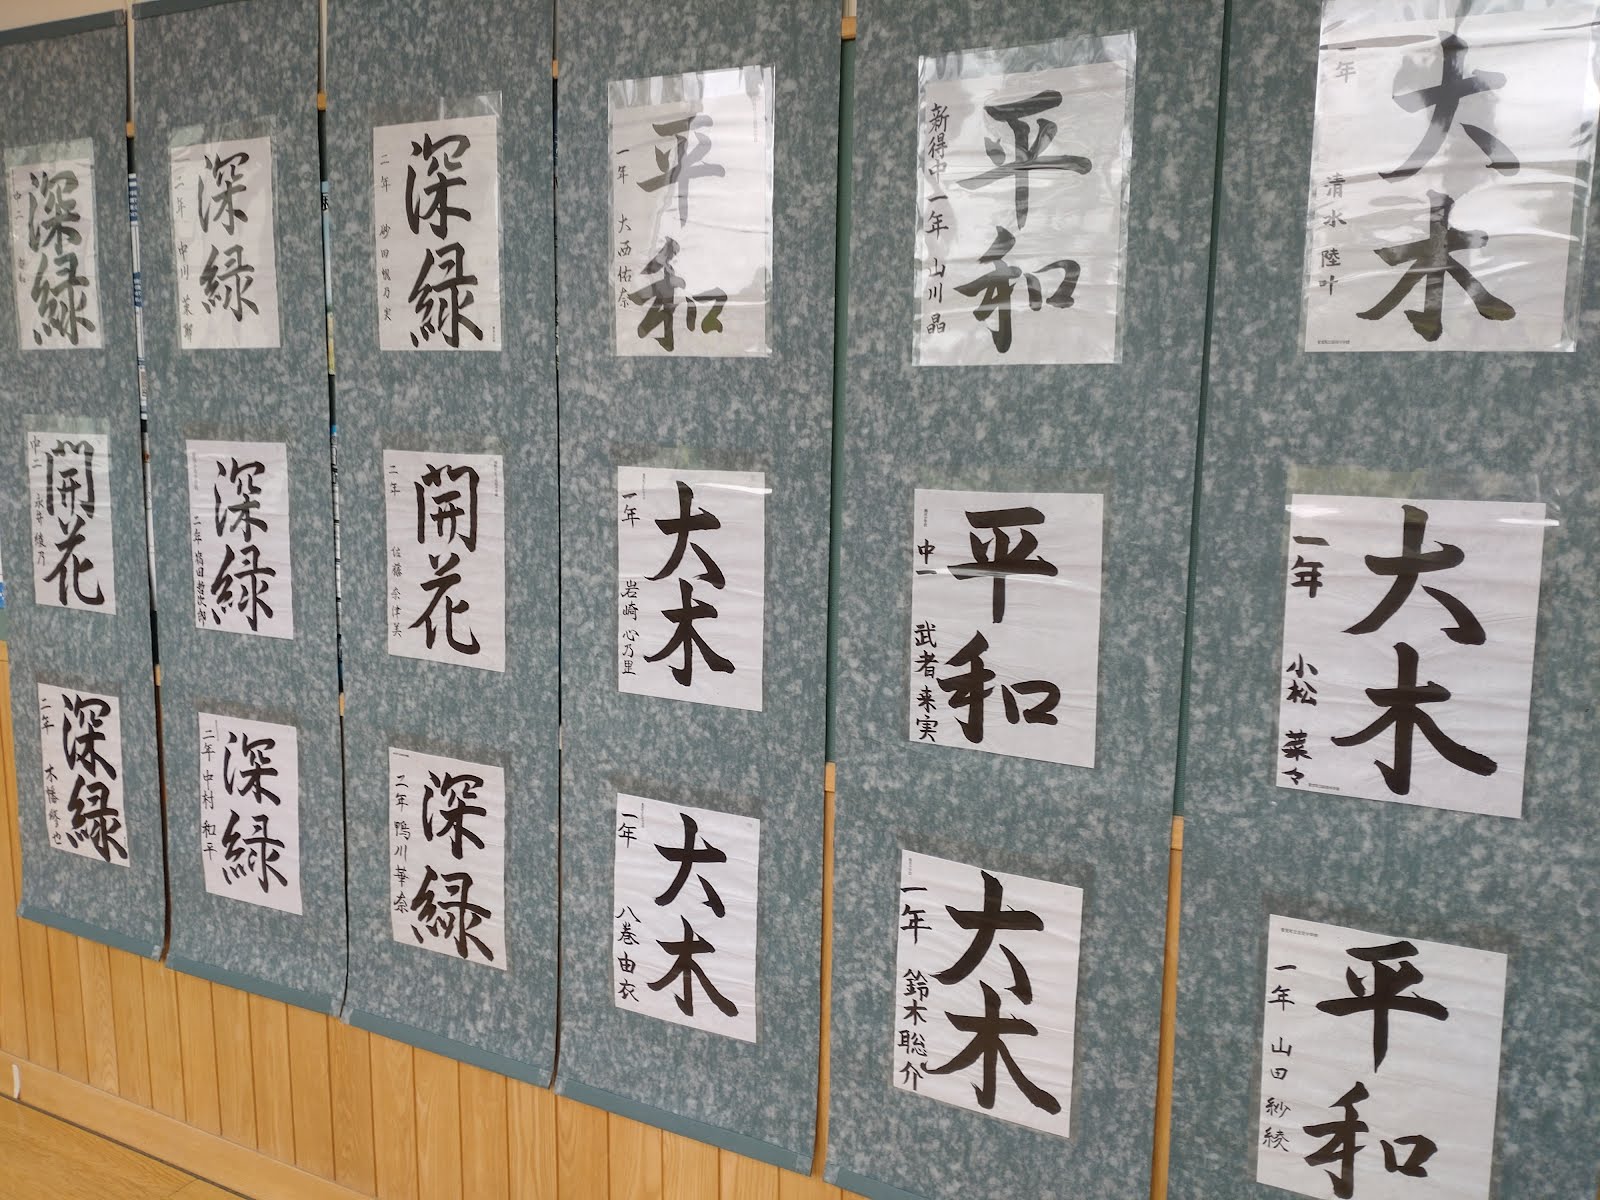 大木
一年
清水陸叶
大木
一年
小松菜々
平和
一年 山田紗綾
平和
新得中一年 山川晶
平和
中一
武者来実
大木
一年
鈴木聡介
平和
一年
大西佑奈
大木
一年
岩崎心乃里
大木
一年
八巻由衣
深緑
二年
開花
二年
佐藤奈津美
深緑
二年 鴨川華奈
深緑
二年
中川
深緑
二年
深緑
二年 中村和平
深緑
中二
開花
中二
永井綾乃
深緑
二年